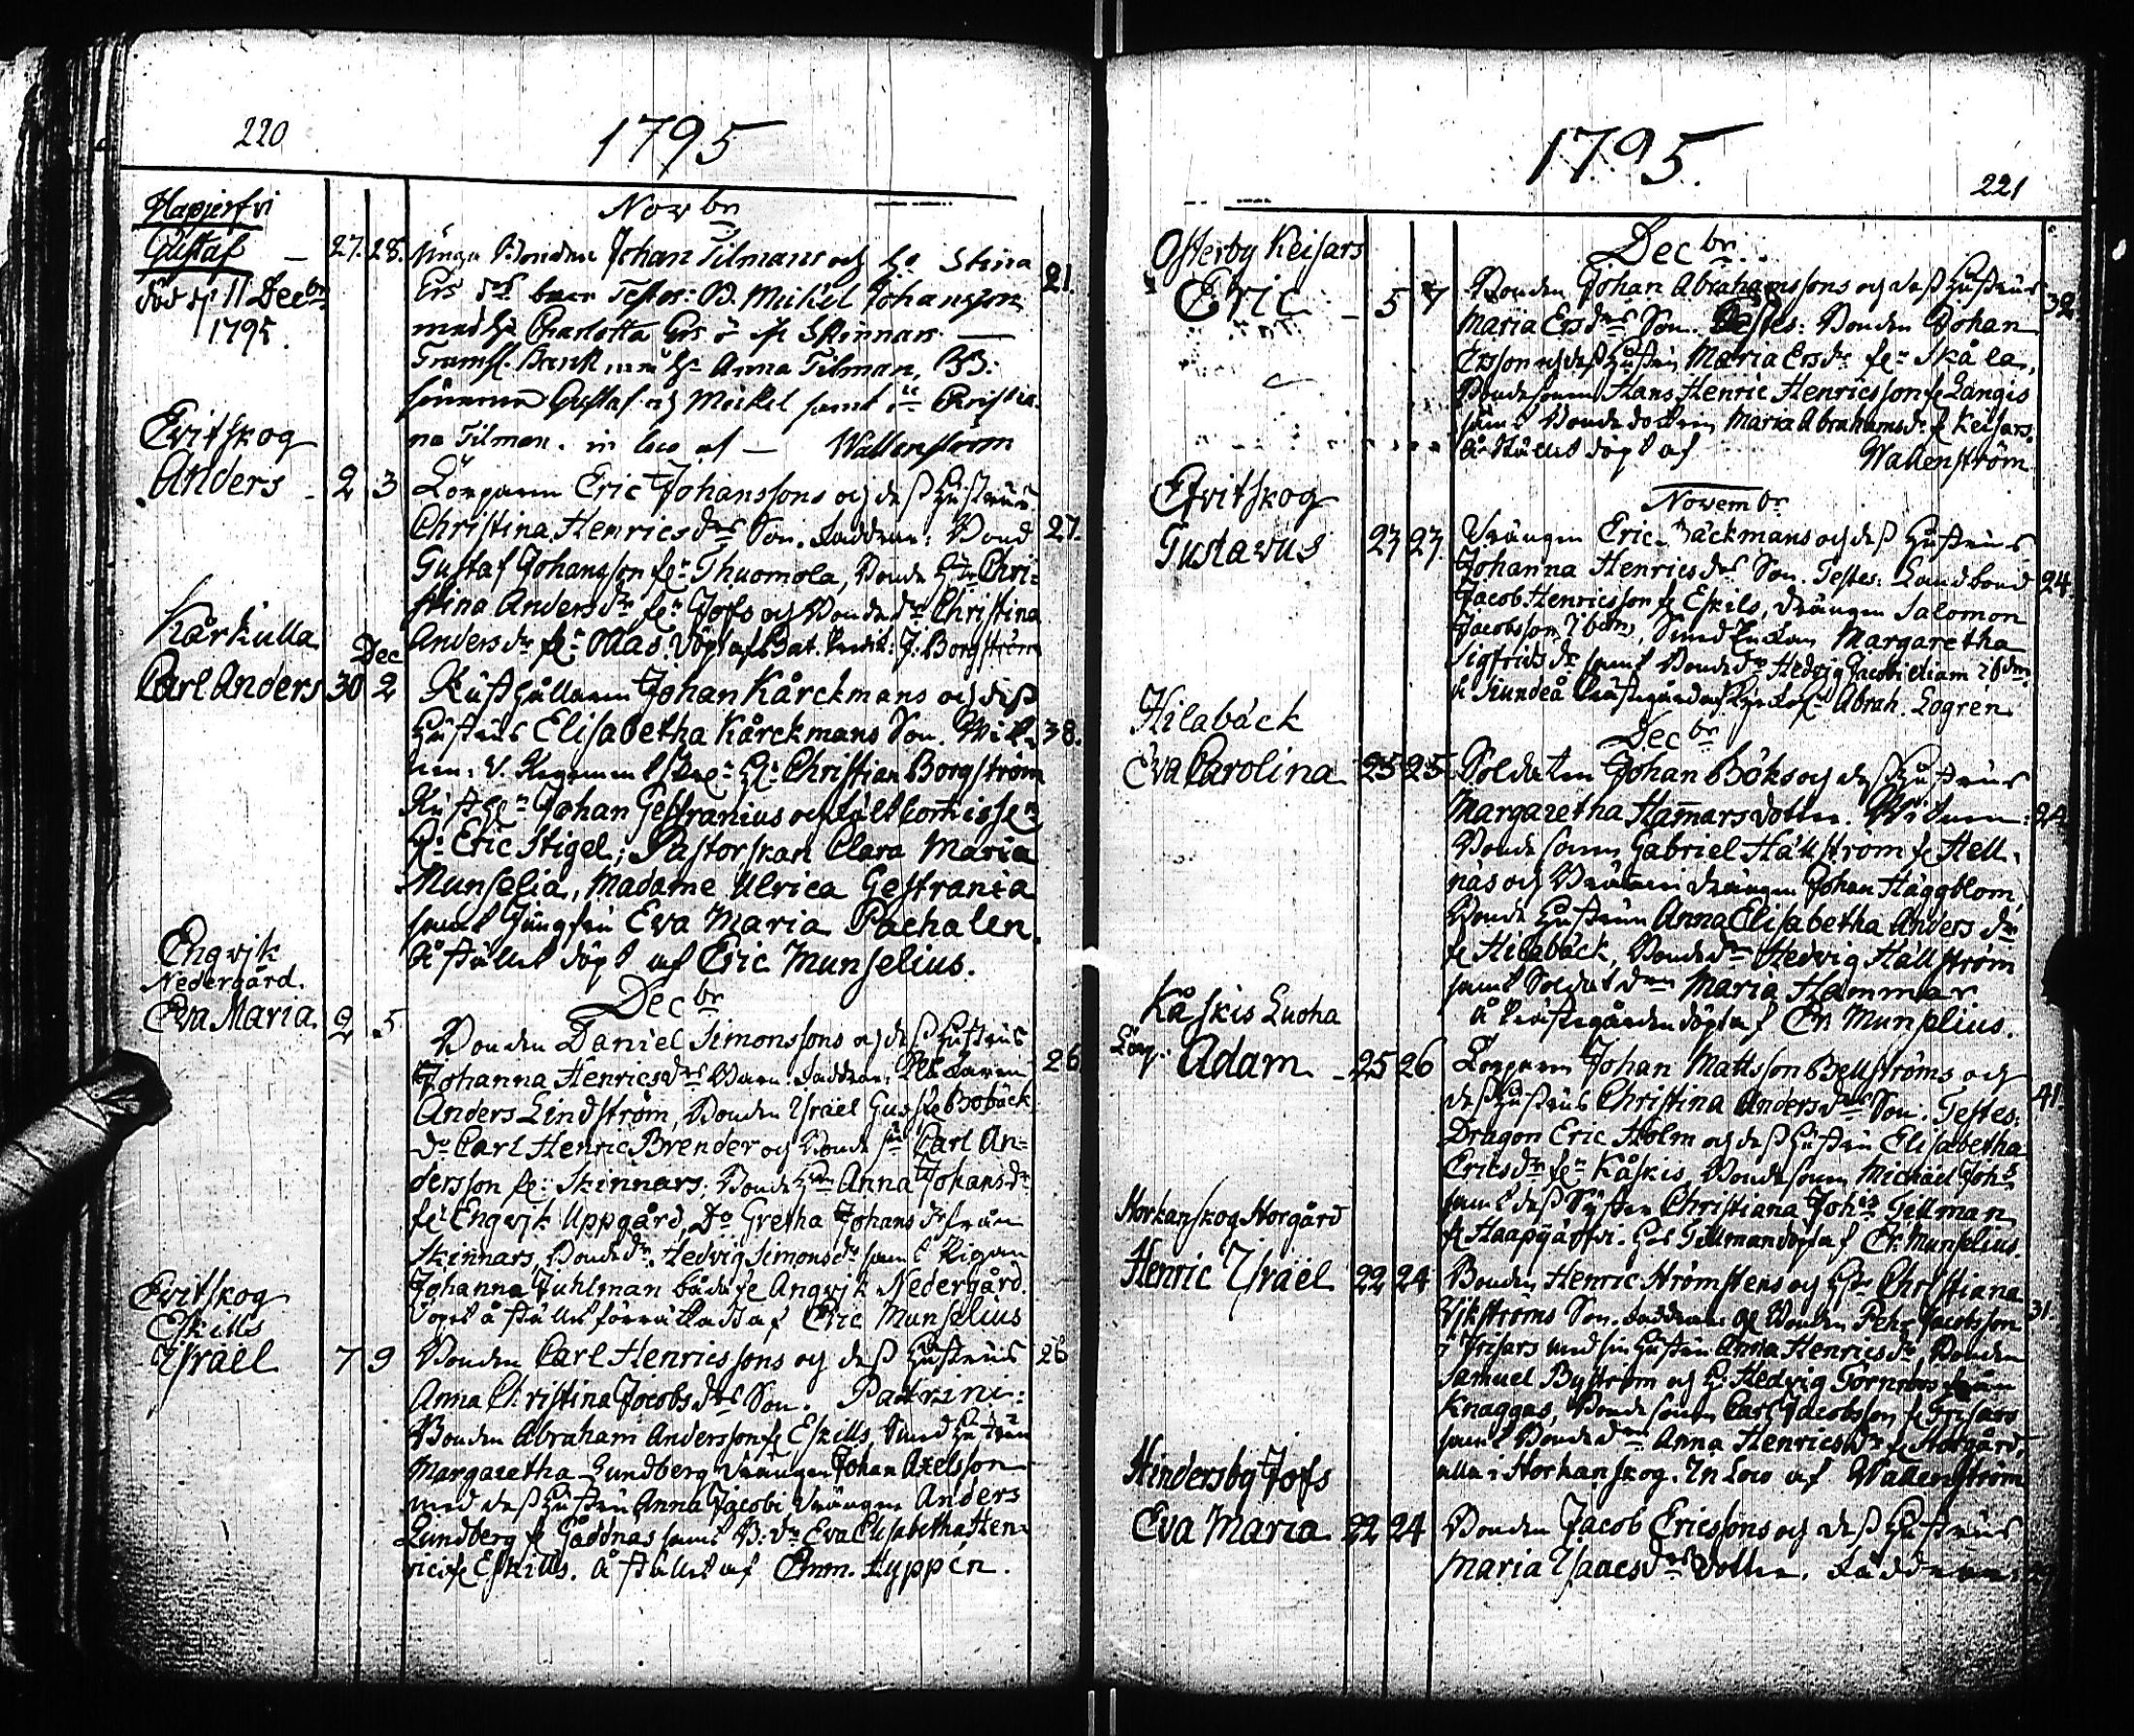 220
1795
Hapjerfvi
Gustaf
död d. 11 Decbr
1795.
Novbr
27. 28. Unga Bonden Johan Tilmans och h. Stina 21.
Ers barn Testes: B. Mickel Johansson
med h. Charlotta Ers Skinnars
h. Anna Tilman,
Gustaf och Mickel samt Christia-
na Tilman. in loco af Wallenström
Evitskog
Anders 2 3
Torparen Eric Johanssons och dess hustrus
Christina Henricsdrs Son. Faddrar: Bond 27.
Gustaf Johansson fr Thuomola, Bonde h. Chri-
stina Andersdr fr Jofs och Bondedr Christina
Andersdr fr Ollas. Döpt af Bat. Predik: J. Borgström
Kårkulla
Dec
Carl Anders 30 2
Rusthållaren Johan Kårckmans och dess
hustrus Elisabetha Kårckmans Son. Wit- 38.
nen: V. Regements Hr Christian Borgström
Johan Gestranius och
Hr Eric Stigel; Pastorskan Clara Maria
Munselia, Madame Ulrica Gestrania
samt Jungfru Eva Maria Pachalen.
å stället döpt af Eric Munselius.
Engvik
Nedergård.
Eva Maria. 2 5
Decbr
Bonden Daniel Simonssons och dess hustrus
Johanna Henricsdrs Barn. Faddrar: 26
Anders Lindström, Bonden Israel Gus fr Bobäck
do Carl Henric Brender och Bonde sn Carl An-
dersson fr Skinnars; Bonde h. Anna Johansdr
fr Engvik Uppgård, Do Gretha Johansdr från
Skinnars, Bondedr Hedvig Simonsdr samt Pigan
Johanna Juhlman båda fr Angvik Nedergård.
Döpt å stället förrättadt af Eric Munselius
Evitskog
Eskills
Israel 7 9
Bonden Carl Henricssons och dess hustrus 26
Anna Christina Jacobsdrs Son. Patrini:
Bonden Abraham Andersson fr Eskills Smed hustrun
Margaretha Lundberg drängen Johan Axelsson
med dess hustru Anna Jacobi drängen Anders
Lundberg fr Gäddnas samt B: dr Eva Elisabetha Hen-
rici fr Eskills. å stället af Emm. Lyppén.
1795.
221
Österby Keisars
Eric 5 7
Decbr
Bonden Johan Abrahamssons och dess hustrus 32
Maria Ersdrs Son. Testes: Bonden Johan
Ersson och dess hustru Maria Ersdr fr Skåla,
Bondesonen Hans Henric Henricsson fr Langis
samt Bonde dottren Maria Abrahamsdr fr Keisars.
å stället döpt af Wallenström
Efvitskog
Gustavus 27 27
Novembr
Drängen Eric Bäckmans och dess hustrus
Johanna Henricsdrs Son. Testes: Landbond 24
Jacob Henricsson fr Eskils, drängen Salomon
Jacobsson ibm, Smed Enckan Margaretha
Sigfridsdr samt Bondedr Hedvig Jacobi etiam ibdm.
fr Siundeå Abrah. Logrén.
Hilabäck
Eva Carolina 25 25
Decbr
Soldaten Johan Böks och dess hustrus
Margaretha Hamarsdotter. Witnen: 24
Bondesonen Gabriel Hällström fr Hell-
näs och drängen Johan Häggblom,
Bonde hustrun Anna Elisabetha Andersdr
fr Hilabäck, Bondedr Hedvig Hällström
samt Soldatdr Maria Hammar
å Prästegården döpt af Er. Munselius.
Kåskis Luoha
Torp. Adam 25 26
Torparen Johan Mattsson Bellströms och
dess hustrus Christina Andersdrs Son. Testes: 41.
Dragon Eric Holm och dess hustru Elisabetha
Ericsdr fr Kåskis, Bondesonen Michäel Johs
samt dess Syster Christiana Johs Tillman
fr Haapajärfvi. Hos Tillman döpt af Er. Munselius.
Horkanskog Norgård
Henric Israël 22 24
Bonden Henric Strömstens och h. Christiana
Wikströms Son. Faddrar Bonden Pehr Jacobsson 31
i Frisars med sin hustru Anna Henricsdr, Bonden
Samuel Byström och h. Hedvig Törnroos från
Knaggas, Bondesonen Carl Jacobsson fr Frisars
samt Bondedr Anna Henricsdr fr Norgård,
alla i Horkanskog. In loco af Wallenström
Hindersby Jofs
Eva Maria 22 24
Bonden Jacob Ericssons och dess hustrus
Maria Isaacsdrs dotter. Faddrar: